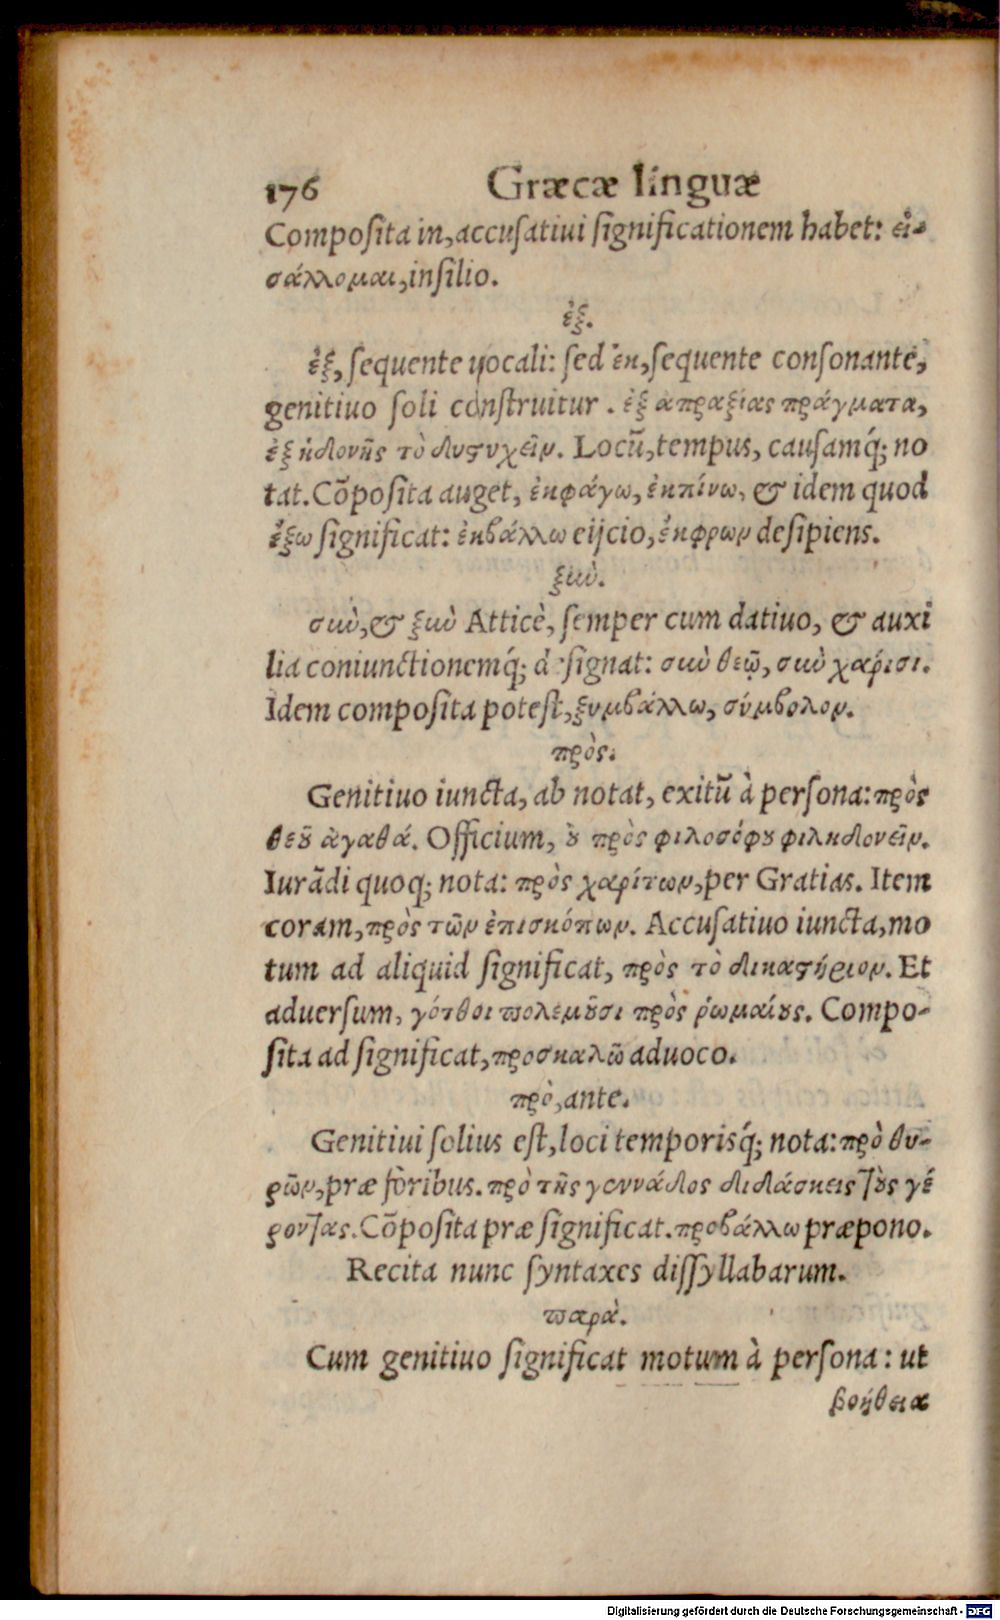 176 Græcæ linguæ
Composita in, accusatiui significationem habet: εἰ-
σάλλομαι, insilio.
ἐξ.
ἐξ, sequente vocali: sed ἐκ, sequente consonante,
genitiuo soli construitur. ἐξ ἀπραξίας πράγματα,
ἐξ ἡδονῆς τὸ δυστυχεῖν. Locũ, tempus, causamq́; no
tat. Cõposita auget, ἐκφάγω, ἐκπίνω, & idem quod
ἔξω significat: ἐκβάλλω eijcio, ἔκφρων desipiens.
ξυὺ.
σὺν, & ξὺν Atticè, semper cum datiuo, & auxi
lia coniunctionemq́; designat: σὺν θεῷ, σὺν χάρισι.
Idem composita potest, ξυμβάλλω, σύμβολον.
πρὸς.
Genitiuo iuncta, ab notat, exitũ à persona: πρὸς
θεοῦ ἀγαθά. Officium, οὐ πρὸς φιλοσόφου φιληδονεῖν.
Iurãdi quoq; nota: πρὸς χαρίτων, per Gratias. Item
coram, πρὸς τῶν ἐπισκόπων. Accusatiuo iuncta, mo
tum ad aliquid significat, πρὸς τὸ δικαστήριον. Et
aduersum, γότθοι πολεμοῦσι πρὸς ῥωμαίους. Compo-
sita ad significat, προσκαλῶ aduoco.
πρὸ, ante.
Genitiui solius est, loci temporisq́; nota: πρὸ θυ-
ρῶν, præ foribus. πρὸ τῆς γεννάδος διδάσκεις τοὺς γέ
ροντας. Cõposita præ significat. προβάλλω præpono.
Recita nunc syntaxes dissyllabarum.
παρὰ.
Cum genitiuo significat motum à persona: ut
βοήθεια
Digitalisierung gefördert durch die Deutsche Forschungsgemeinschaft - DFG